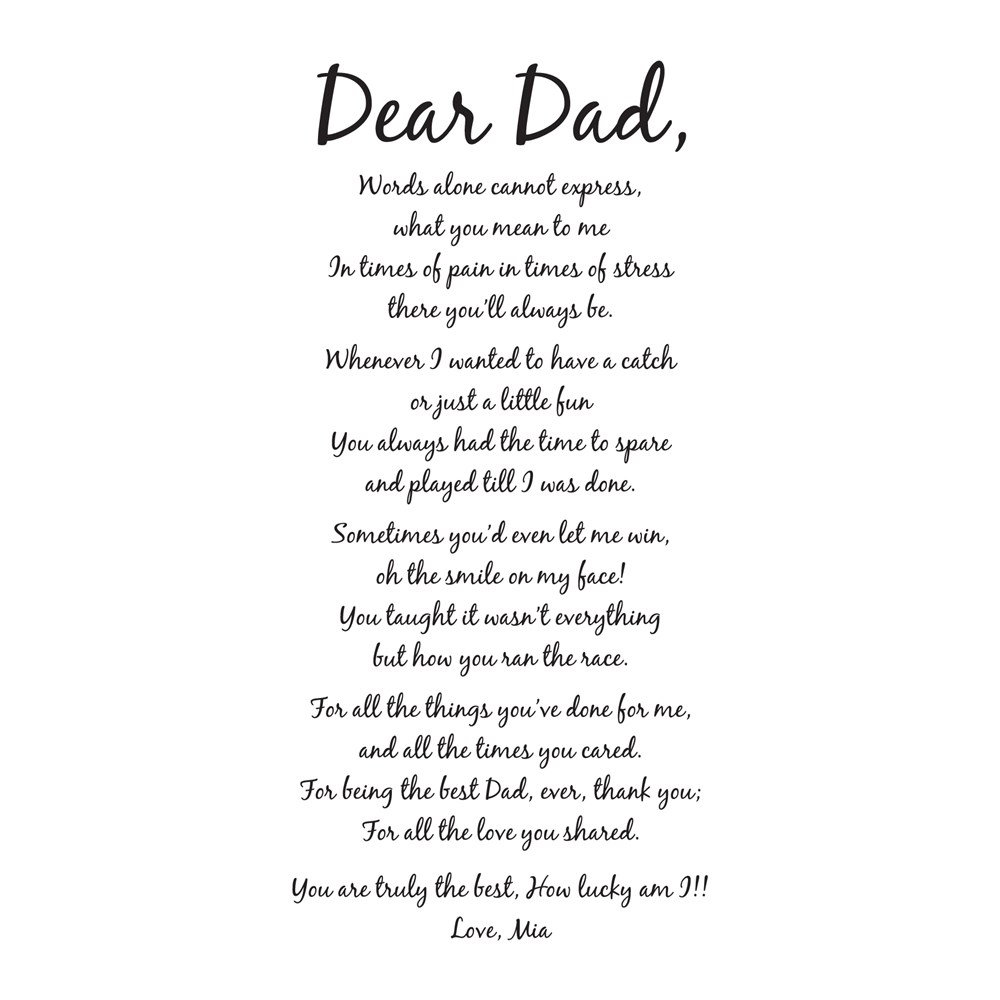 Dear Dad,
Words alone cannot express,
what you mean to me
In times of pain in times of stress
there you'll always be.
Whenever I wanted to have a catch
or just a little fun
You always had the time to spare
and played till I was done.
Sometimes you'd even let me win,
oh the smile on my face!
You taught it wasn't everything
but how you ran the race.
For all the things you've done for me,
and all the times you cared.
For being the best Dad, ever, thank you;
For all the love you shared.
You are truly the best, How lucky am I!!
Love, Mia